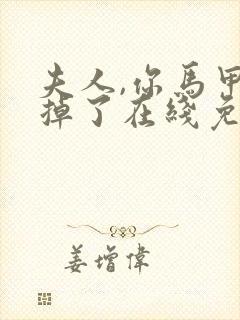 夫人,你馬甲
掉了在綫免
姜增偉